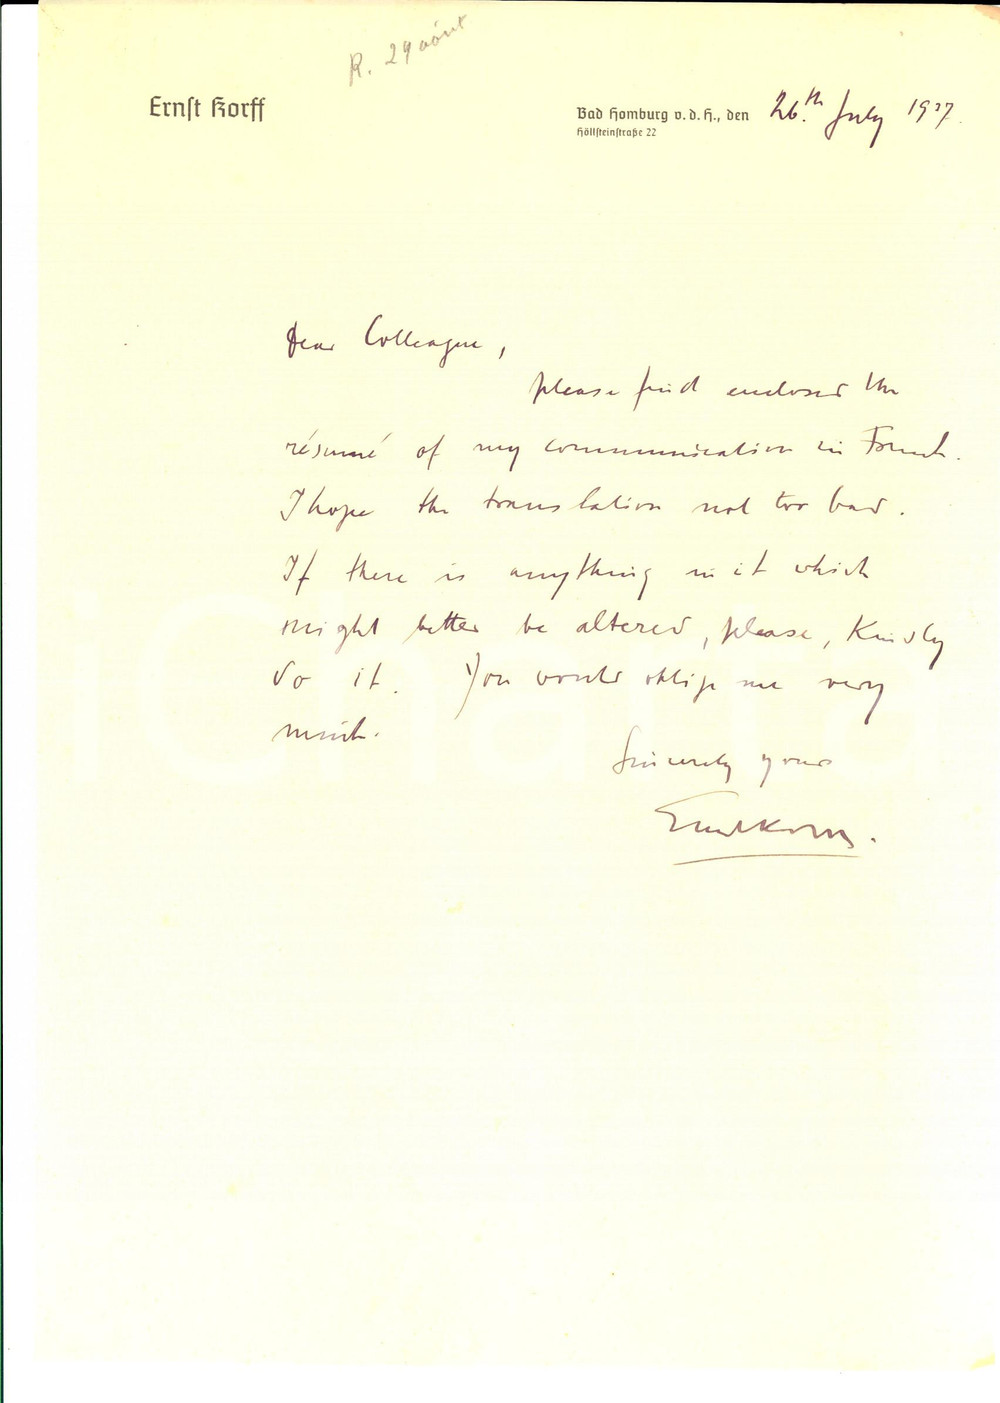 R. 29 août
Ernst Korff
Bad Homburg v. d. H., den 26.th July 1937.
Höllsteinstraße 22
Dear Colleague,
please find enclosed the
résumé of my communication in French.
I hope the translation not too bad.
If there is anything in it which
might better be altered, please, kindly
do it. You would oblige me very
much.
Sincerely yours
Ernst Korff.